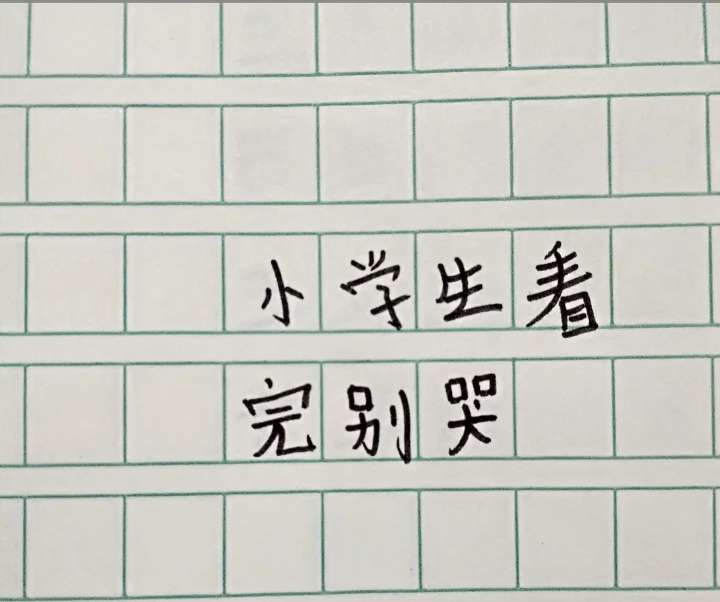 小学生看
完别哭